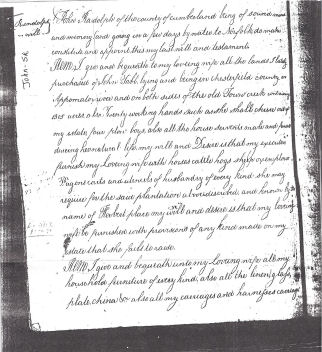 Randolph
will
John Sr
John Radolph of the county of cumberland being of sound mind
and memory and going in a few days by water to Norfolk do make
constitute and appoint this my last will and testament
Item I give and bequeath to my loving wife all the lands I
purchased of John Tabb lying and being in Chesterfield county on
Appomatox river and on both sides of the old Town creek containing
acres also Twenty working hands such as she shall chuse out of
my estate four plow boys also all the house servants male and
during her natural life my will and Desire is that my executors
furnish my Loving wife with horses cattle hogs sheep oxen plows
Wagons carts and utensils of husbandry of every kind she may
require for the said plantation above described and known by the
name of place my will and desire is that my loving
not be furnished with provisions of any kind made on my
estate that she fails to raise.
Item I give and bequeath unto my Loving wife all my
household furniture of every kind, also all the linen glass,
plate, china &c also all my carriages and harnesses